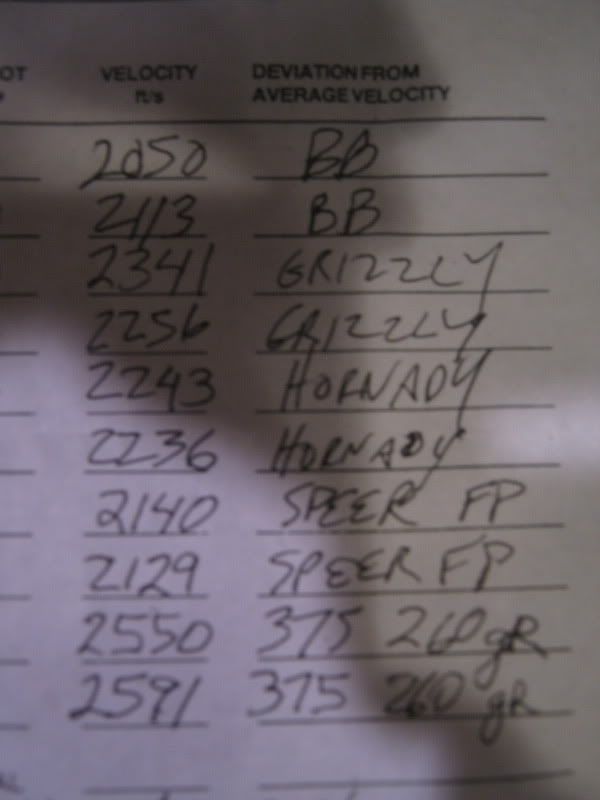 OT VELOCITY DEVIATION FROM
ft/s AVERAGE VELOCITY
2050 BB
2113 BB
2341 GRIZZLY
2256 GRIZZLY
2243 HORNADY
2236 HORNADY
2140 SPEER FP
2129 SPEER FP
2550 375 260 gR
2591 375 260 gR